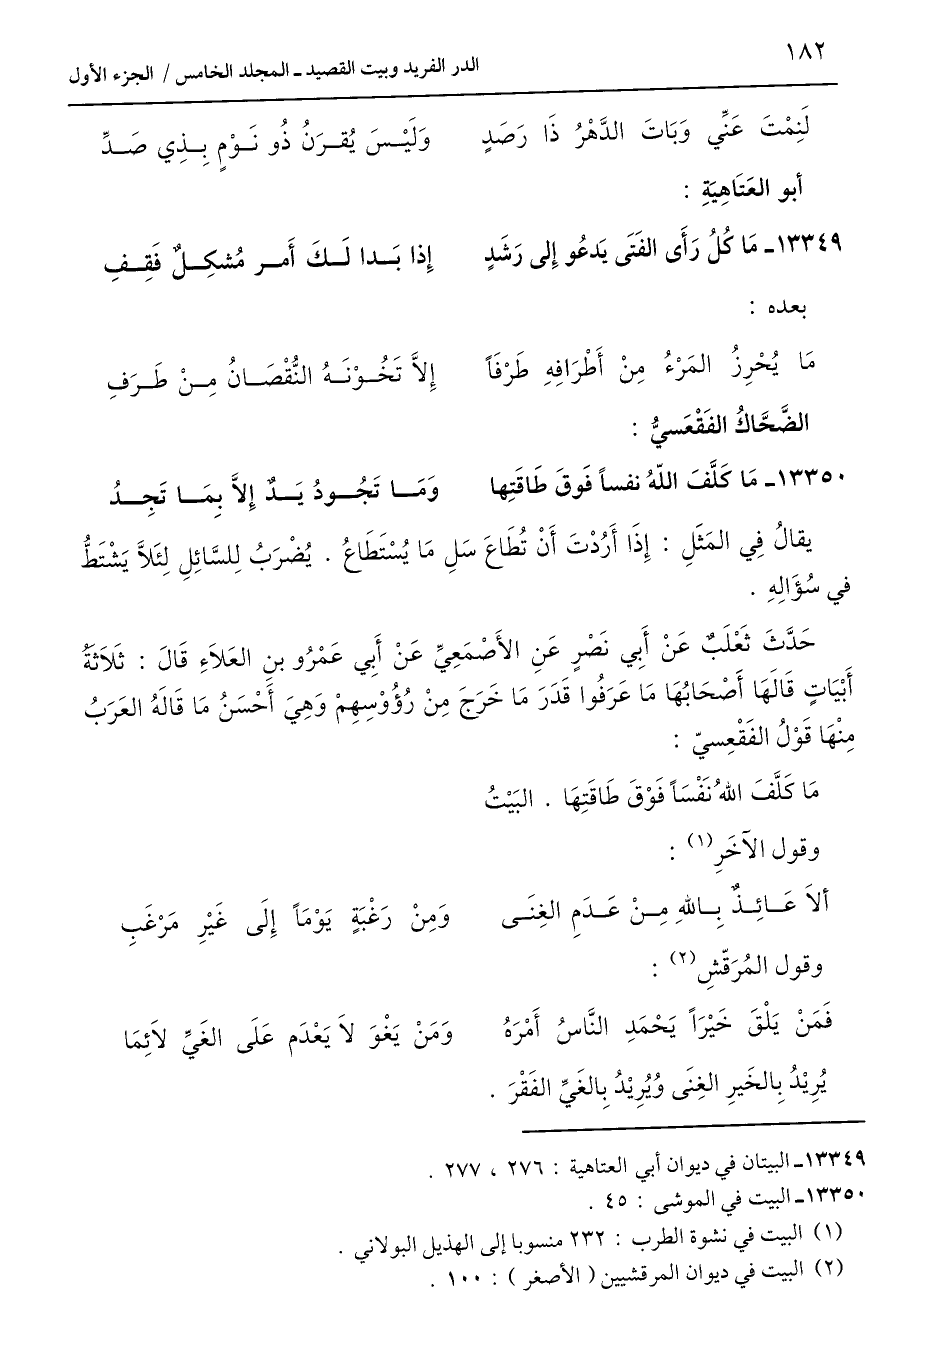 ١٨٢
الدر الفريد وبيت القصيد ـ المجلد الخامس / الجزء الأول
لَنِمْتَ عَنِّي وَبَاتَ الدَّهْرُ ذَا رَصَدٍ وَلَيْسَ يُقرَنُ ذُو نَوْمٍ بِذِي صَدِّ
أبو العَتَاهِيَةِ :
١٣٣٤٩ـ مَا كُلُ رَأَى الفَتَى يَدعُو إلى رَشَدٍ إذا بَدا لَكَ أَمر مُشكِلٌ فَقِفِ
بعده :
مَا يُحْرِزُ المَرْءُ مِنْ أَطْرَافِهِ طَرْفَاً إلاَّ تَخُوْنَهُ النُّقْصَانُ مِنْ طَرَفِ
الضَّحَّاكُ الفَقْعَسيُّ :
١٣٣٥٠ـ مَا كَلَّفَ اللّهُ نفساً فَوقَ طَاقَتِها وَمَا تَجُودُ يَدٌ إلاَّ بِمَا تَجِدُ
يقالُ فِي المَثَلِ : إذَا أَرُدْتَ أَنْ تُطَاعَ سَلِ مَا يُسْتَطَاعُ . يُضْرَبُ لِلسَّائِلِ لِئَلاَّ يَشْتَطُّ
في سُؤَالِهِ .
حَدَّثَ ثَعْلَبٌ عَنْ أَبِي نَصْرٍ عَنِ الأَصْمَعِيِّ عَنْ أَبِي عَمْرُو بنِ العَلاَءِ قَالَ : ثَلاَثَةُ
أَبْيَاتٍ قَالَهَا أَصْحَابُهَا مَا عَرَفُوا قَدَرَ مَا خَرَجَ مِنْ رُؤُوْسِهِمْ وَهِيَ أَحْسَنُ مَا قَالَهُ العَرَبُ
مِنْهَا قَوْلُ الفَقْعِسيّ :
مَا كَلَّفَ اللهُ نَفْسَاً فَوْقَ طَاقَتِهَا . البَيْتُ
وقول الآخَرِ(١) :
ألاَ عَائِذٌ بِاللهِ مِنْ عَدَمِ الغِنَى وَمِنْ رَغْبَةٍ يَوْمَاً إلَى غَيْرِ مَرْغَبِ
وقول المُرَقّشِ(٢) :
فَمَنْ يَلْقَ خَيْرَاً يَحْمَدِ النَّاسُ أَمْرَهُ وَمَنْ يَغْوَ لاَ يَعْدَم عَلَى الغَيِّ لاَئِمَا
يُرِيْدُ بِالخَيرِ الغِنَى وَيُرِيْدُ بِالغَيِّ الفَقْرَ .
١٣٣٤٩ـ البيتان في ديوان أبي العتاهية : ٢٧٦ ، ٢٧٧ .
١٣٣٥٠ـ البيت في الموشى : ٤٥ .
(١) البيت في نشوة الطرب : ٢٣٢ منسوبا إلى الهذيل البولاني .
(٢) البيت في ديوان المرقشيين ( الأصغر ) : ١٠٠ .